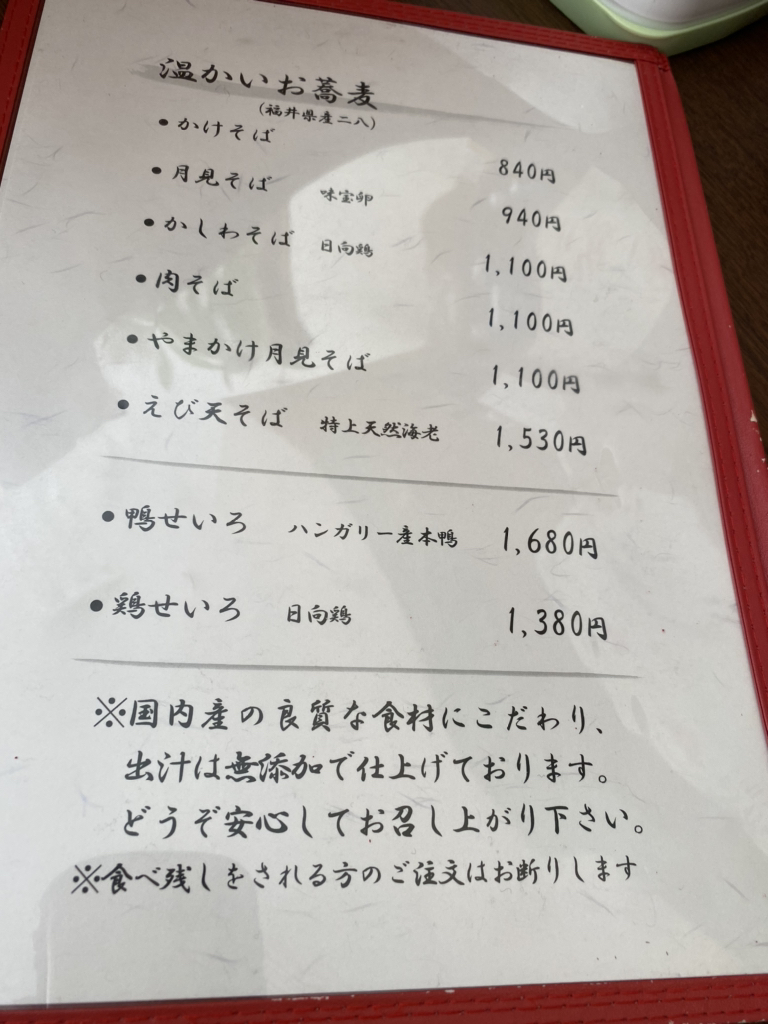 温かいお蕎麦
(福井県産二八)
•かけそば 840円
•月見そば 味宝卵 940円
•かしわそば 日向鶏 1,100円
•肉そば 1,100円
•やまかけ月見そば 1,100円
•えび天そば 特上天然海老 1,530円
•鴨せいろ ハンガリー産本鴨 1,680円
•鶏せいろ 日向鶏 1,380円
※国内産の良質な食材にこだわり、
出汁は無添加で仕上げております。
どうぞ安心してお召し上がり下さい。
※食べ残しをされる方のご注文はお断りします